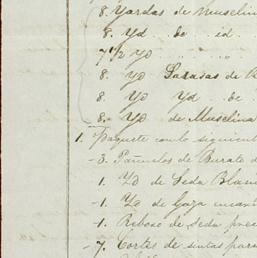 8. Yardas de Muselina
8. Yd de id.
7 1/2 Yd
8. Yd Sarasas de
8 Yd Yd. de
8. Yd de Muselina
1. Paquete con lo siguiente
3. Pañuelos de Burato
1. Yd de Seda Blan
1. Yd de Gaza
1. Reboso de Seda
7. Cortes de cintas para